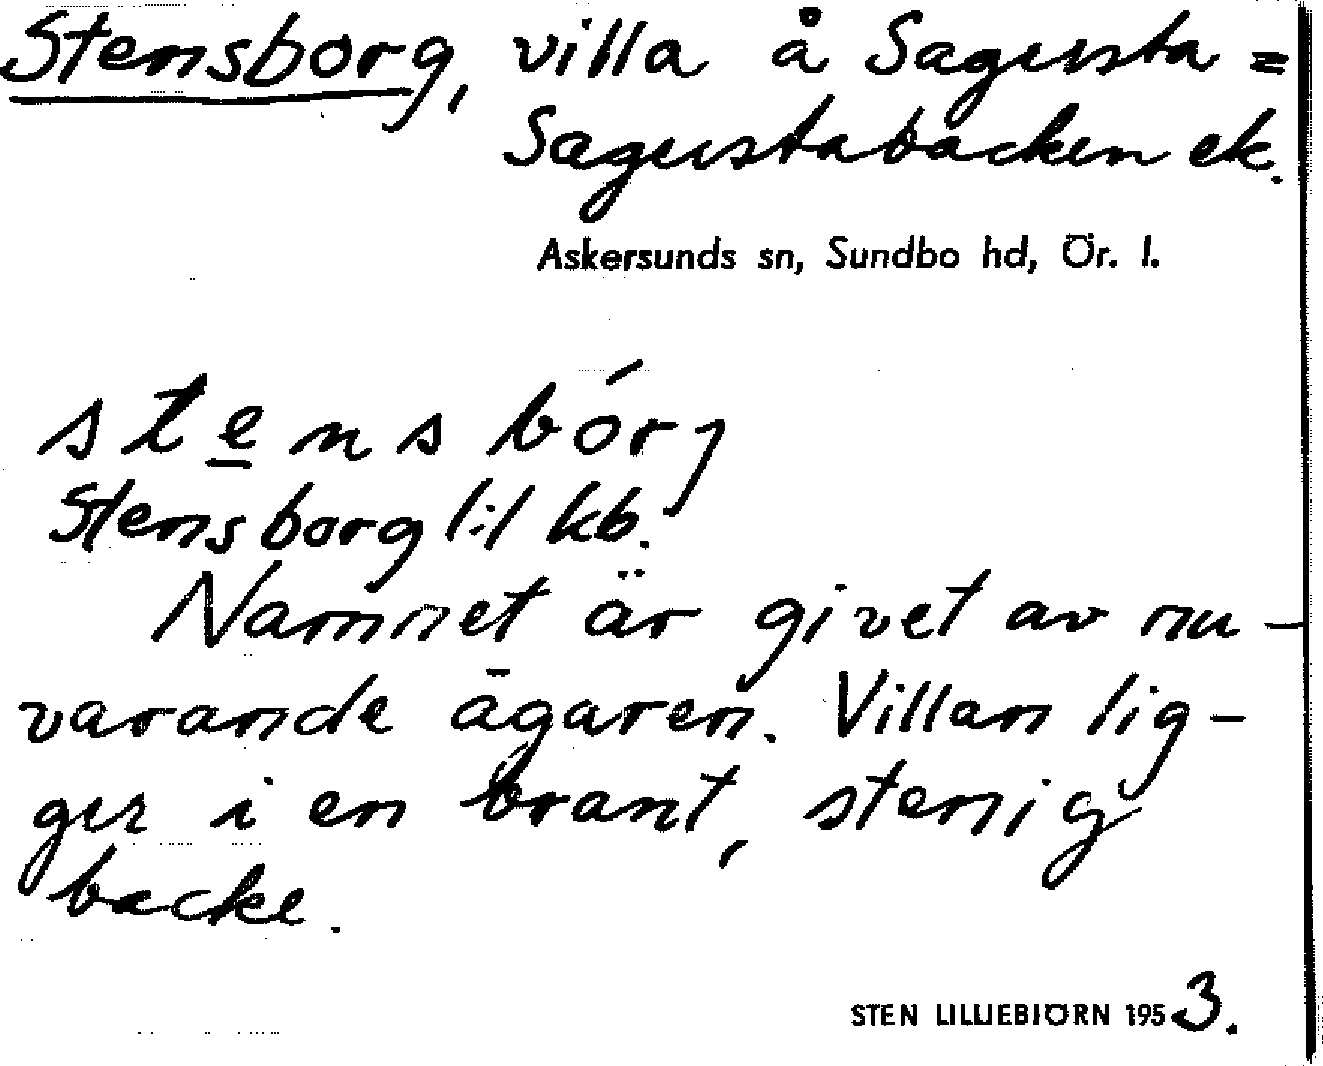 Stensborg, villa å Sagusta =
Sagustabacken ek.
Askersunds sn, Sundbo hd, Ör. l.
stensbórj
Stensborg 1:1 kb.
Namnet är givet av nu-
varande ägaren. Villan lig-
ger i en brant, stenig
backe.
STEN LILLIEBJÖRN 1953.